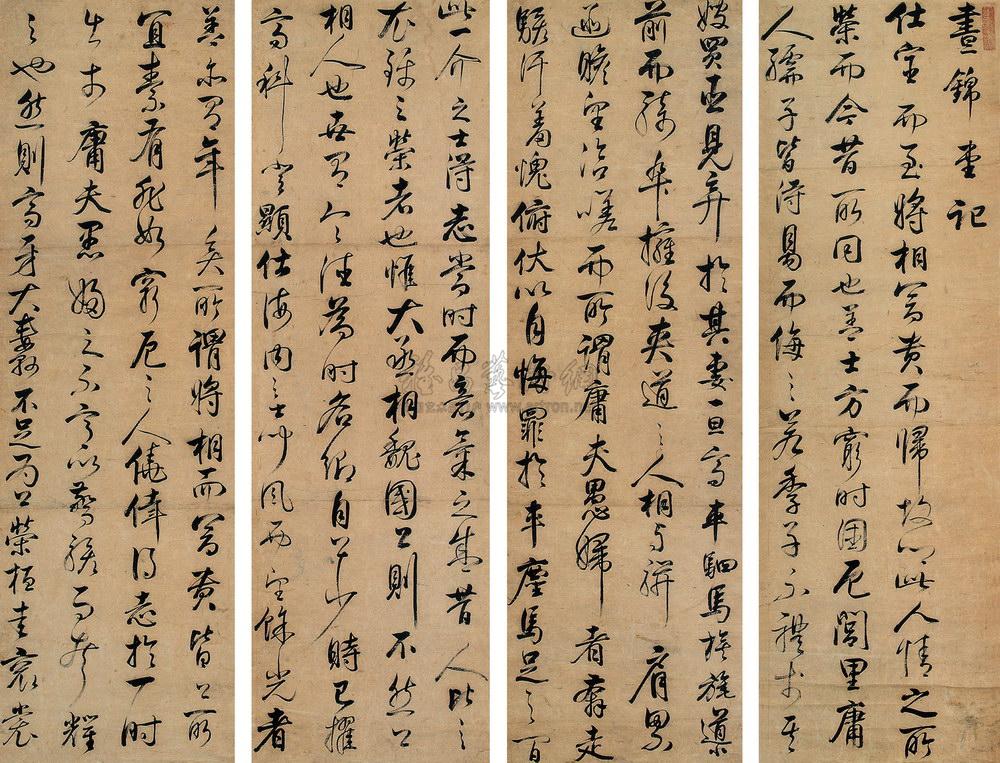 晝錦堂記
仕宦而至將相富貴而歸故鄉此人情之所
榮而今昔所同也蓋士方窮時困厄閭里庸
人孺子皆得易而侮之若季子不禮於其
嫂買臣見棄於其妻一旦高車駟馬旗旄導
前而騎卒擁後夾道之人相與駢肩累
迹瞻望咨嗟而所謂庸夫愚婦者奔走
駭汗羞愧俯伏以自悔罪於車塵馬足之間
此一介之士得志當時而意氣之盛昔人比之
衣錦之榮者也惟大丞相魏國公則不然公
相人也世有令德為時名卿自公少時已擢
高科登顯仕海內之士聞風而望餘光者
蓋亦有年矣所謂將相而富貴皆公所
宜素有非如窮厄之人僥倖得志於一時
出於庸夫愚婦之不意以驚駭而夸耀
之也然則高牙大纛不足為公榮桓圭袞裳